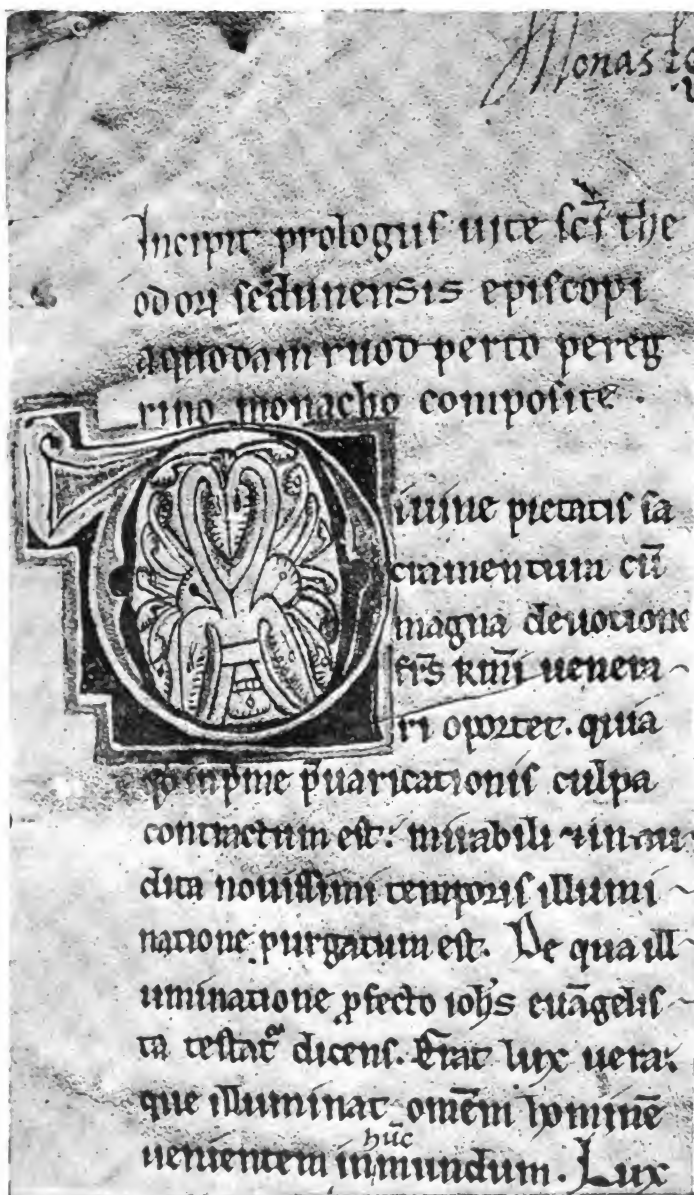 Monast
Incipit prologus uite scī the
odori sedunensis episcopi
a quodam ruodperto pereg
rino monacho composite.
Diuine pietatis sa
cramentum cū
magna deuotione
frs kmi uenera-
ri oportet. quia
qd inprime puaricationis culpa
contractum est: mirabili & inau
dita nouissimi temporis illumi-
natione purgatum est. De qua ill-
uminatione pfecto iohs euāgelis-
ta testat dicens. Erat lux uera:
que illuminat omēm hominē
hūc
uenientem in mundum. Lux